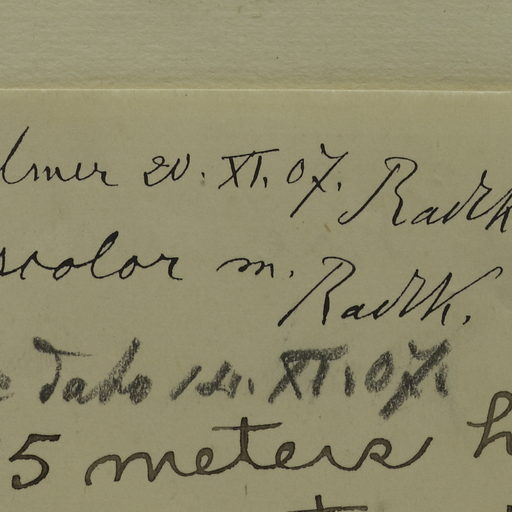 lmer 20. XI. 07. Radlk
scolor m. Radlk.
e dato 14. XI. 07.
5 meters h